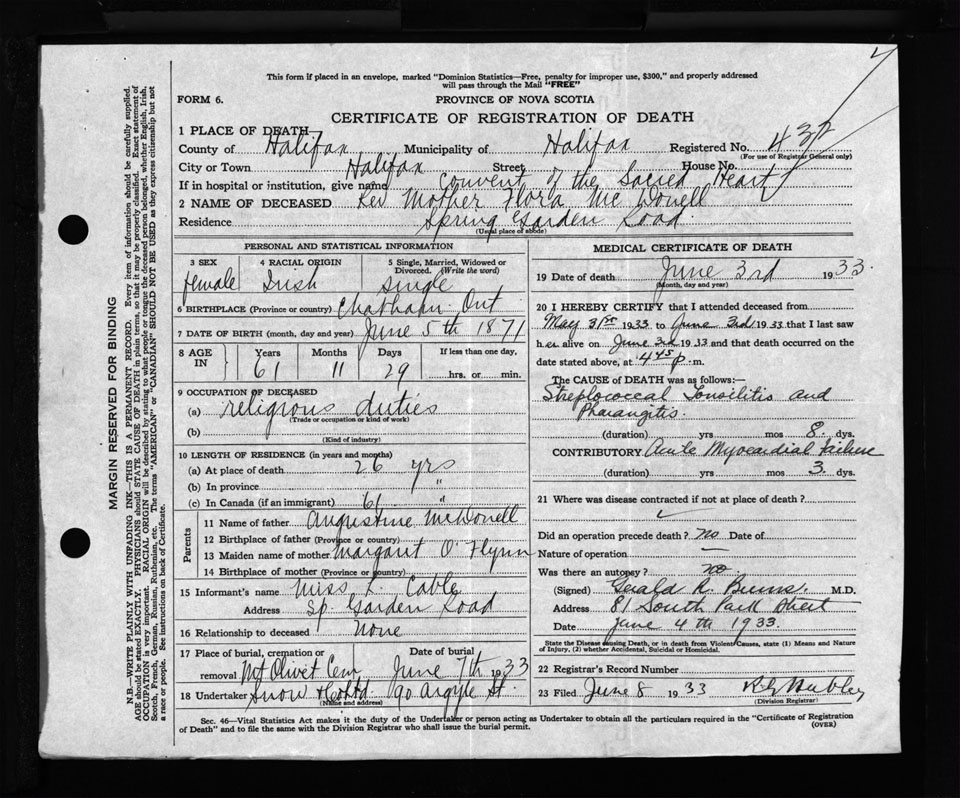 This form if placed in an envelope, marked "Dominion Statistics—Free, penalty for improper use, $300," and properly addressed
will pass through the Mail "FREE"
FORM 6.
PROVINCE OF NOVA SCOTIA
CERTIFICATE OF REGISTRATION OF DEATH
1 PLACE OF DEATH
County of Halifax Municipality of Halifax Registered No. 432
(For use of Registrar General only)
City or Town Halifax Street House No.
If in hospital or institution, give name Convent of the Sacred Heart
2 NAME OF DECEASED Rev Mother Flora McDonell
Residence Spring Garden Road.
(Usual place of abode)
PERSONAL AND STATISTICAL INFORMATION
3 SEX 4 RACIAL ORIGIN 5 Single, Married, Widowed or
Divorced. (Write the word)
female Irish single
6 BIRTHPLACE (Province or country) Chatham Ont
7 DATE OF BIRTH (month, day and year) June 5th 1871
8 AGE IN Years Months Days If less than one day,
61 11 29 hrs. or min.
9 OCCUPATION OF DECEASED
(a) religious duties
(Trade or occupation or kind of work)
(b)
(Kind of industry)
10 LENGTH OF RESIDENCE (in years and months)
(a) At place of death 26 yrs
(b) In province "
(c) In Canada (if an immigrant) 61 "
Parents
11 Name of father Augustine McDonell
12 Birthplace of father (Province or country)
13 Maiden name of mother Margaret O'Flynn
14 Birthplace of mother (Province or country)
15 Informant's name Miss L. Cable
Address Sp. Garden Road
16 Relationship to deceased None
17 Place of burial, cremation or Date of burial
removal Mt Olivet Cem June 7th 1933
18 Undertaker Snow & Co Ltd. 90 Argyle St.
(Name and address)
MEDICAL CERTIFICATE OF DEATH
19 Date of death June 3rd 1933.
(Month, day and year)
20 I HEREBY CERTIFY that I attended deceased from
May 31st 1933 to June 3rd 1933 that I last saw
her alive on June 3rd 1933 and that death occurred on the
date stated above, at 4 45 p. m.
The CAUSE OF DEATH was as follows:
Streptococcal Tonsilitis and
Pharangitis.
(duration) yrs mos 8. dys.
CONTRIBUTORY Acute Myocardial failure
(duration) yrs mos 3. dys.
21 Where was disease contracted if not at place of death?
Did an operation precede death? no Date of
Nature of operation —
Was there an autopsy? no.
(Signed) Gerald R. Burns. M.D.
Address 81 South Park Street
Date June 4th 1933.
State the Disease causing Death, or in death from Violent Causes, state (1) Means and Nature
of Injury, (2) whether Accidental, Suicidal or Homicidal.
22 Registrar's Record Number
23 Filed June 8 1933
(Division Registrar)
Sec. 46—Vital Statistics Act makes it the duty of the Undertaker or person acting as Undertaker to obtain all the particulars required in the "Certificate of Registration
of Death" and to file the same with the Division Registrar who shall issue the burial permit.
(OVER)
MARGIN RESERVED FOR BINDING
N.B.—WRITE PLAINLY WITH UNFADING INK—THIS IS A PERMANENT RECORD. Every item of information should be carefully supplied.
AGE should be stated EXACTLY. PHYSICIANS should STATE CAUSE OF DEATH in plain terms, so that it may be properly classified. Exact statement of
OCCUPATION is very important. RACIAL ORIGIN will be described by stating to what people or tongue the deceased person belonged, whether English, Irish,
Scotch, French, German, Russian, Ruthenian, etc. The terms "AMERICAN" or "CANADIAN" SHOULD NOT BE USED as they express citizenship but not
a race or people. See instructions on back of Certificate.